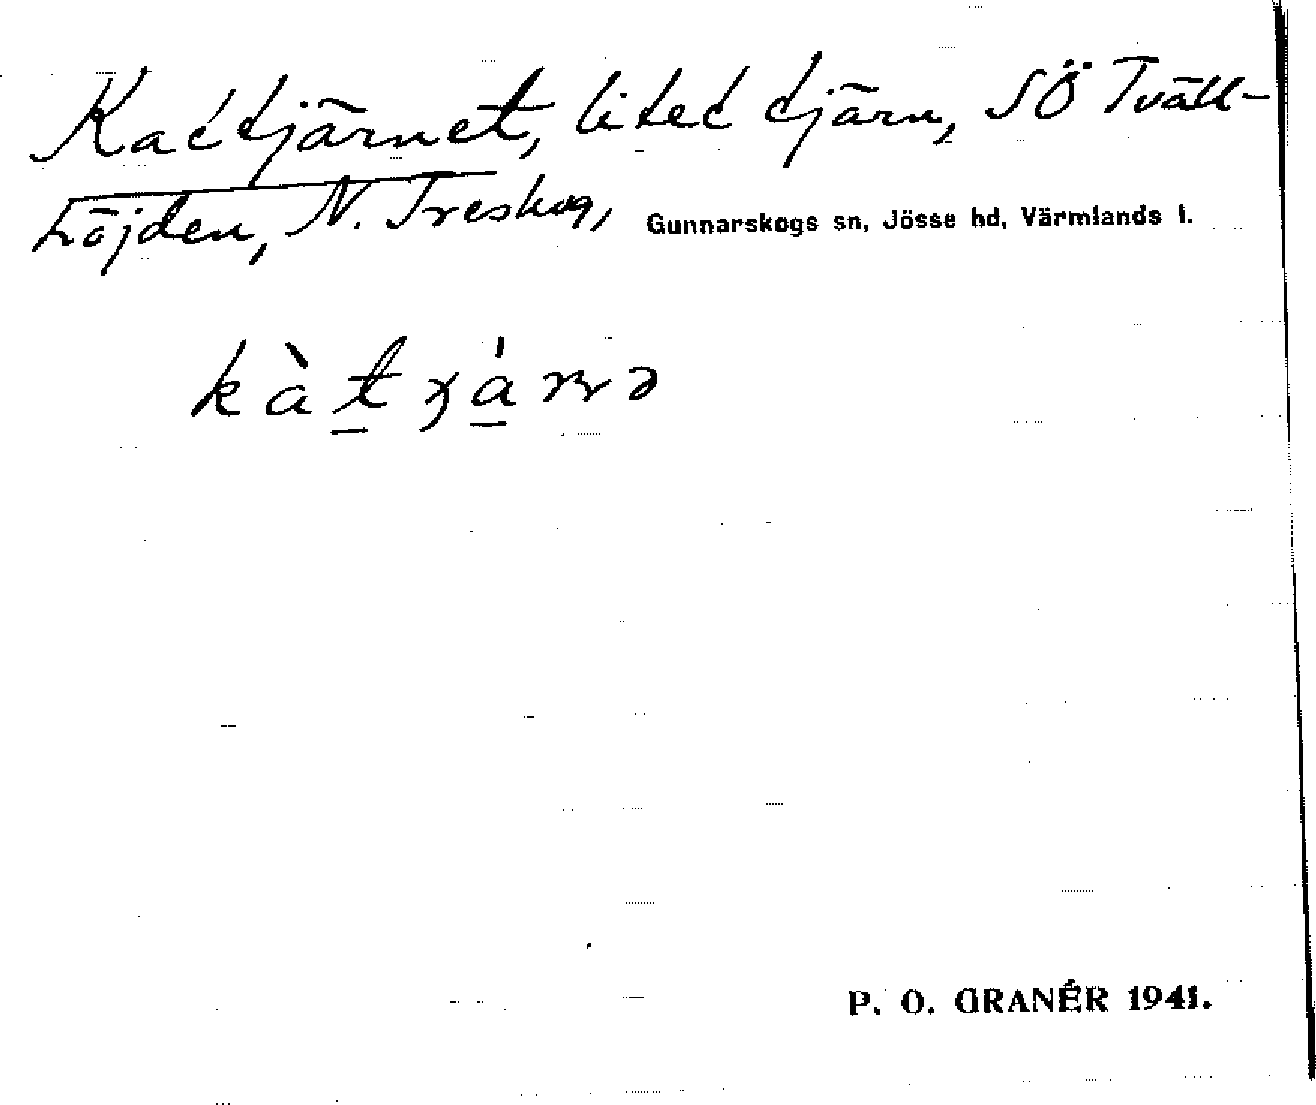 Kattjärnet, litet tjärn, SÖ Tväll-
höjden, N. Treskog, Gunnarskogs sn, Jösse hd, Värmlands l.
P. O. GRANÉR 1941.